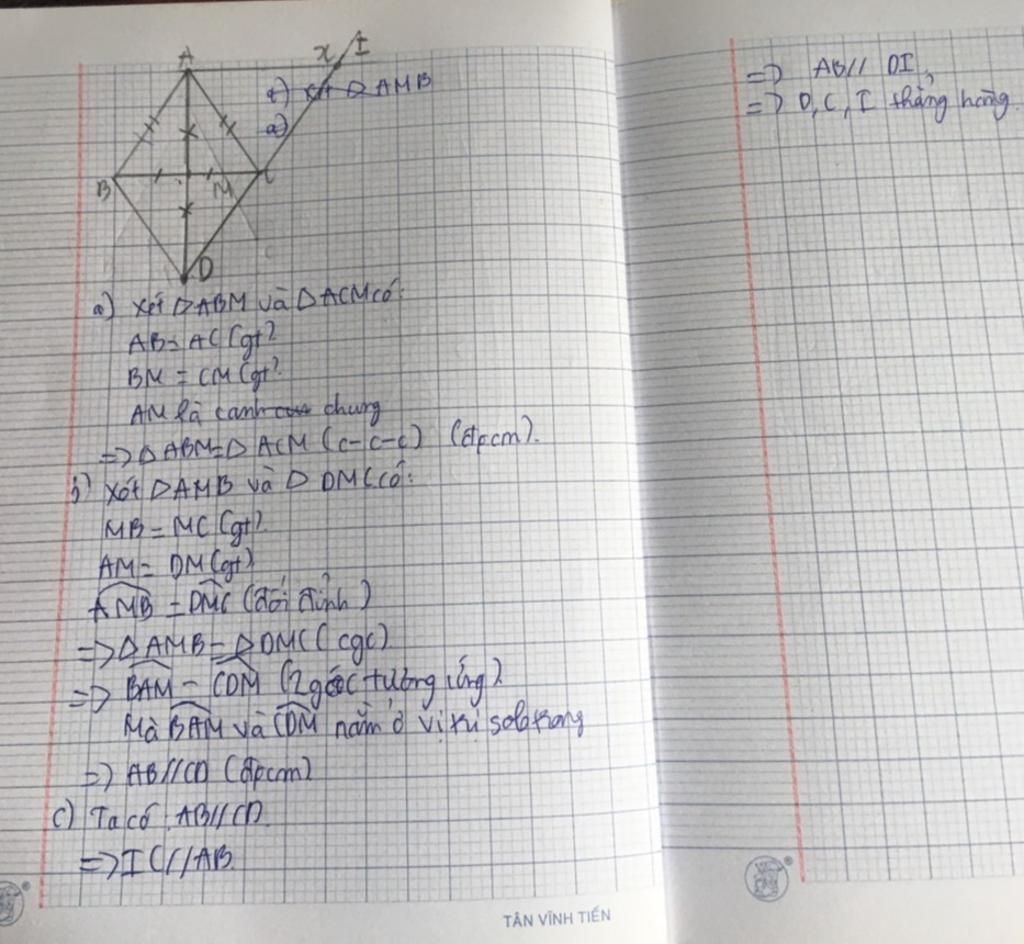 A
x
I
+) xét ΔAMB
a)
B
M
C
D
a) Xét ΔABM và ΔACM có:
AB = AC (gt)
BM = CM (gt)
AM là cạnh chung
=> ΔABM = ΔACM (c-c-c) (đpcm).
b) Xét ΔAMB và ΔDMC có:
MB = MC (gt)
AM = DM (gt)
AMB = DMC (đối đỉnh)
=> ΔAMB = ΔDMC (cgc)
=> BAM = CDM (2 góc tương ứng)
Mà BAM và CDM nằm ở vị trí sole trong
=> AB//CD (đpcm)
c) Ta có: AB//CD
=> IC//AB.
=> AB// DI,
=> D, C, I thẳng hàng.
TÂN VĨNH TIẾN